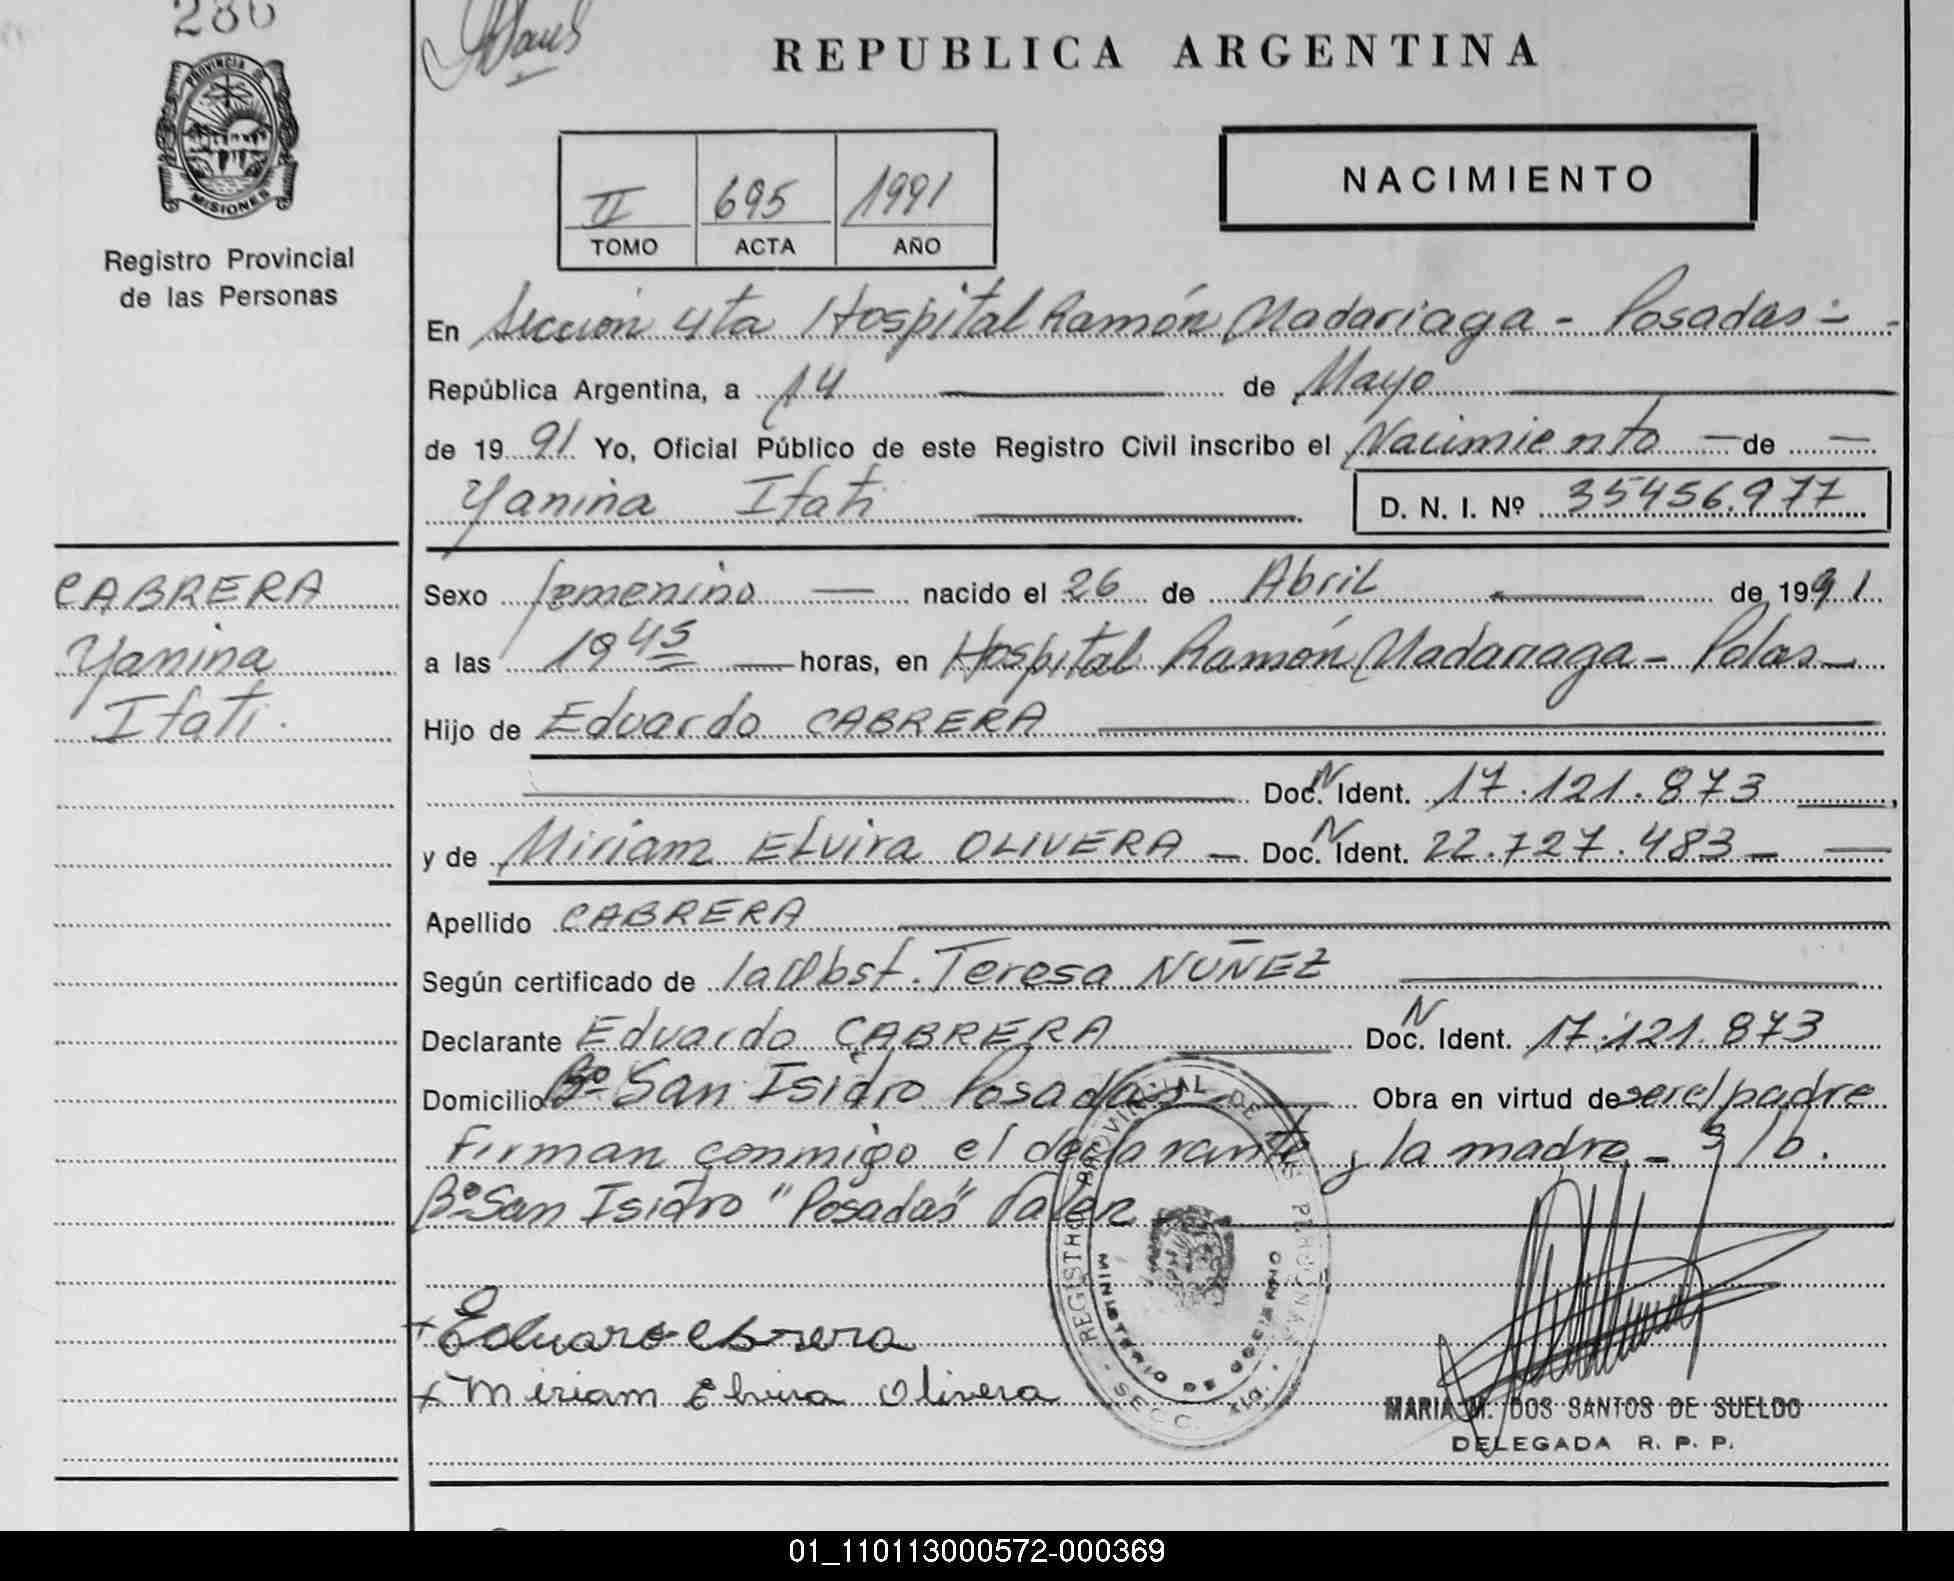 286
REPUBLICA ARGENTINA
PROVINCIA DE
MISIONES
Registro Provincial
de las Personas
II 695 1991
TOMO ACTA AÑO
NACIMIENTO
En Sección 4ta Hospital Ramón Madariaga - Posadas -
República Argentina, a 14 de Mayo
de 1991 Yo, Oficial Público de este Registro Civil inscribo el Nacimiento - de -
Yanina Itati D. N. I. Nº 35456.977
CABRERA
Yanina
Itati.
Sexo femenino - nacido el 26 de Abril de 1991
a las 19 45 horas, en Hospital Ramón Madariaga - Pdas -
Hijo de Eduardo CABRERA
Doc. N Ident. 17.121.873
y de Miriam Elvira OLIVERA - Doc. N Ident. 22.727.483 -
Apellido CABRERA
Según certificado de la Obst. Teresa NUÑEZ
Declarante Eduardo CABRERA Doc. N Ident. 17.121.873
Domicilio Bº San Isidro Posadas Obra en virtud de ser el padre
Firman conmigo el declarante y la madre - S/b.
Bº San Isidro "Posadas" Valen
REGISTRO PROVINCIAL DE LAS PERSONAS
MINISTERIO DE GOBIERNO
SECC. 4ta.
Eduardo Cabrera
Miriam Elvira Olivera
MARIA M. DOS SANTOS DE SUELDO
DELEGADA R. P. P.
01_110113000572-000369